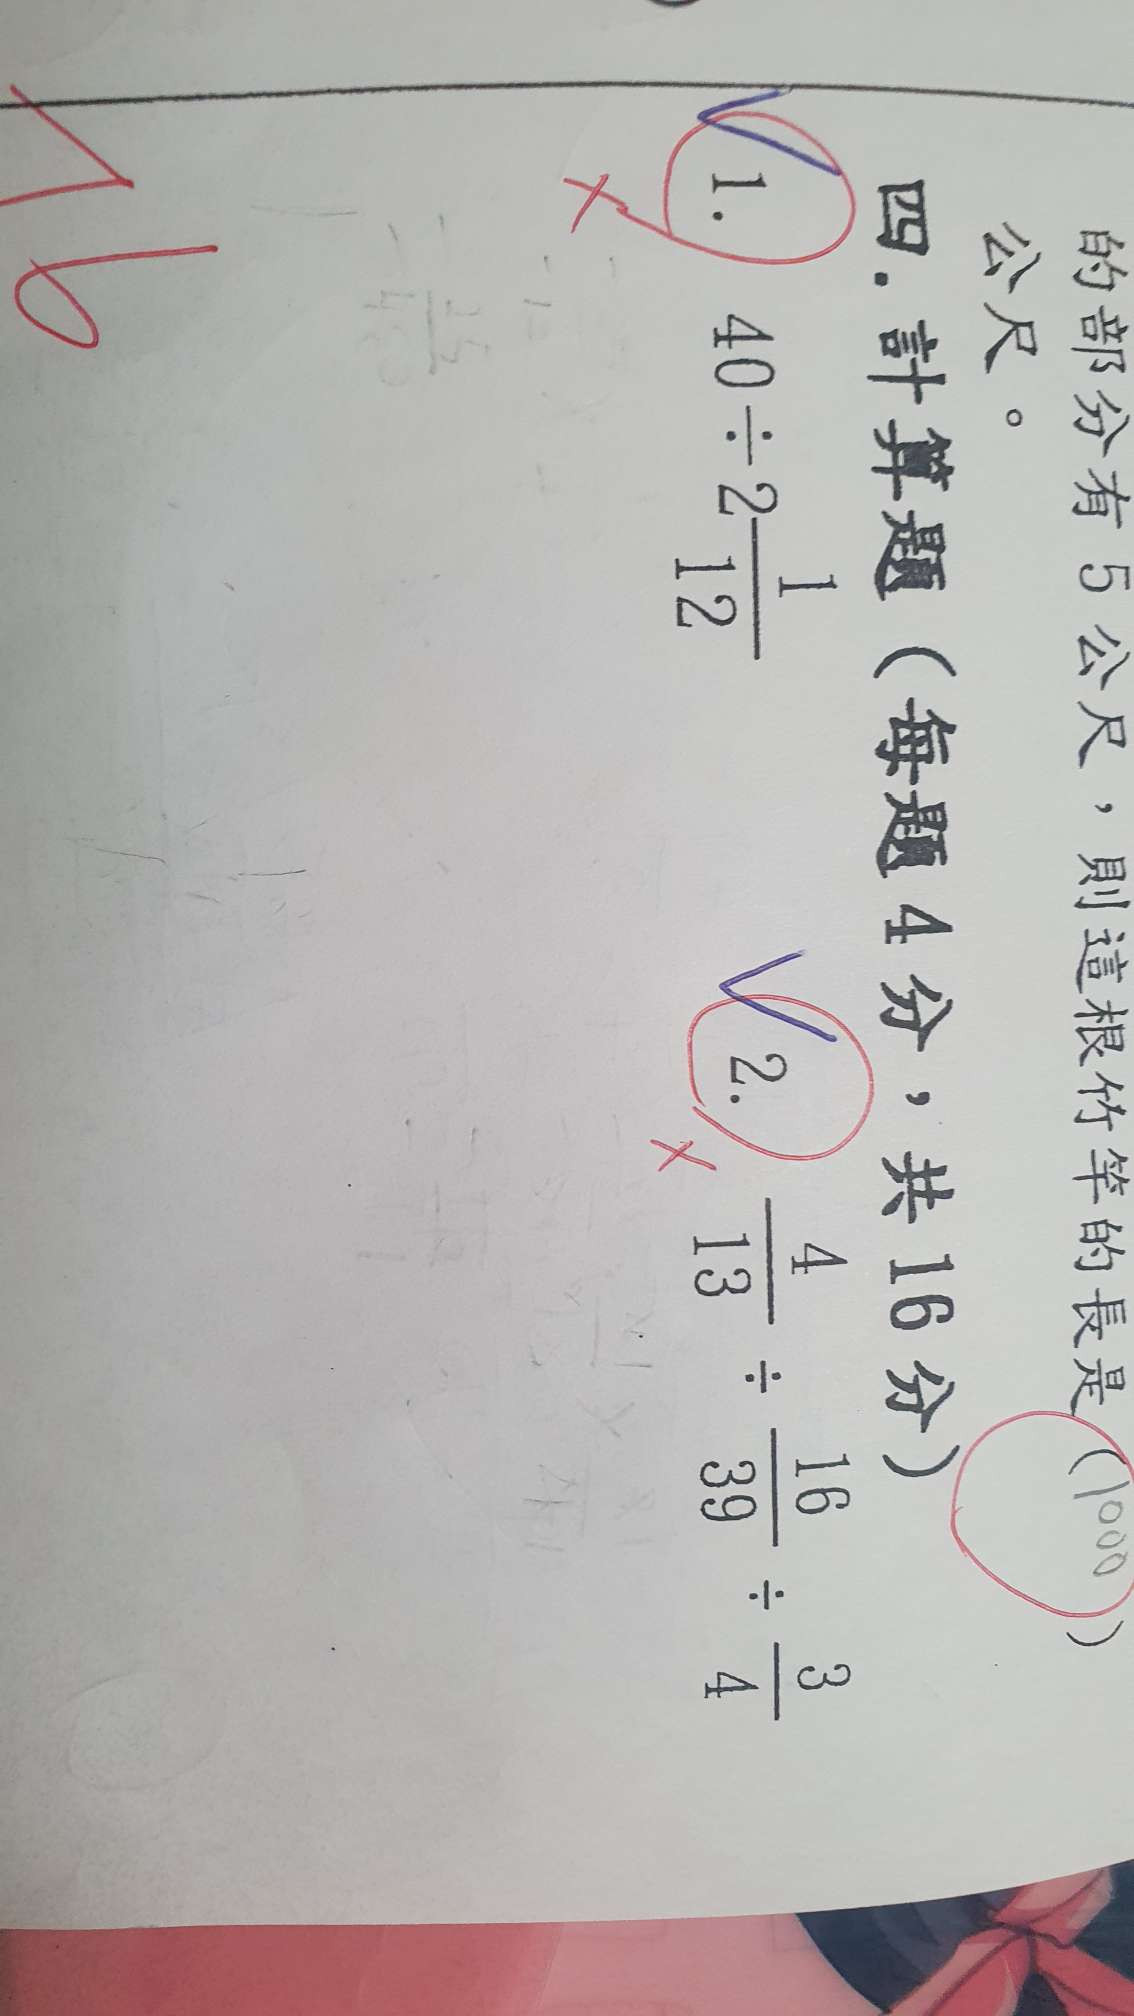 的部分有5公尺，則這根竹竿的長是(1000)
公尺。
四.計算題(每題4分，共16分)
1. 40÷2 1/12 2. 4/13 ÷ 16/39 ÷ 3/4